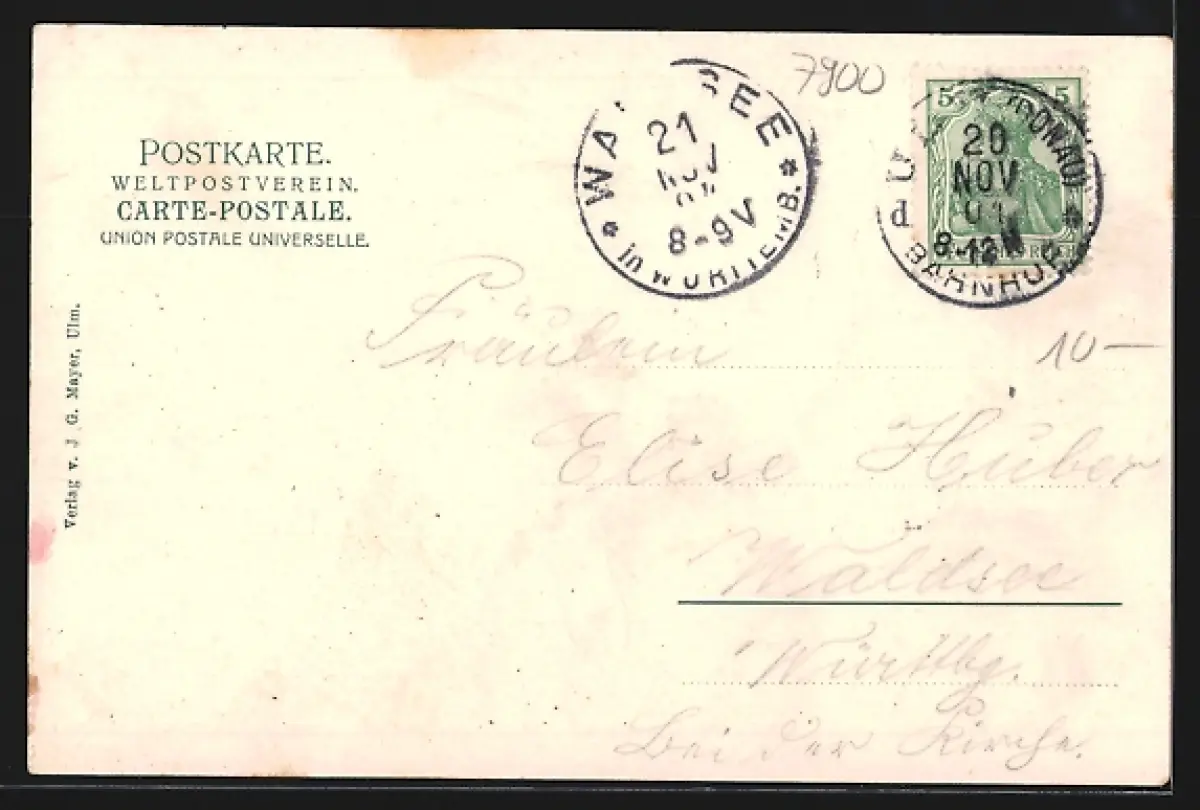 POSTKARTE.
WELTPOSTVEREIN.
CARTE-POSTALE.
UNION POSTALE UNIVERSELLE.
Verlag v. J. G. Mayer, Ulm.
WA SEE
21
NOV
8-9V
* in WÜRTTEMB. *
7900
5 5
U (DONAU)
d
20
NOV
01
8-12N
BAHNHOF
10—
Fräulein
Elise Huber
Waldsee
Württbg.
Bei der Kirche.